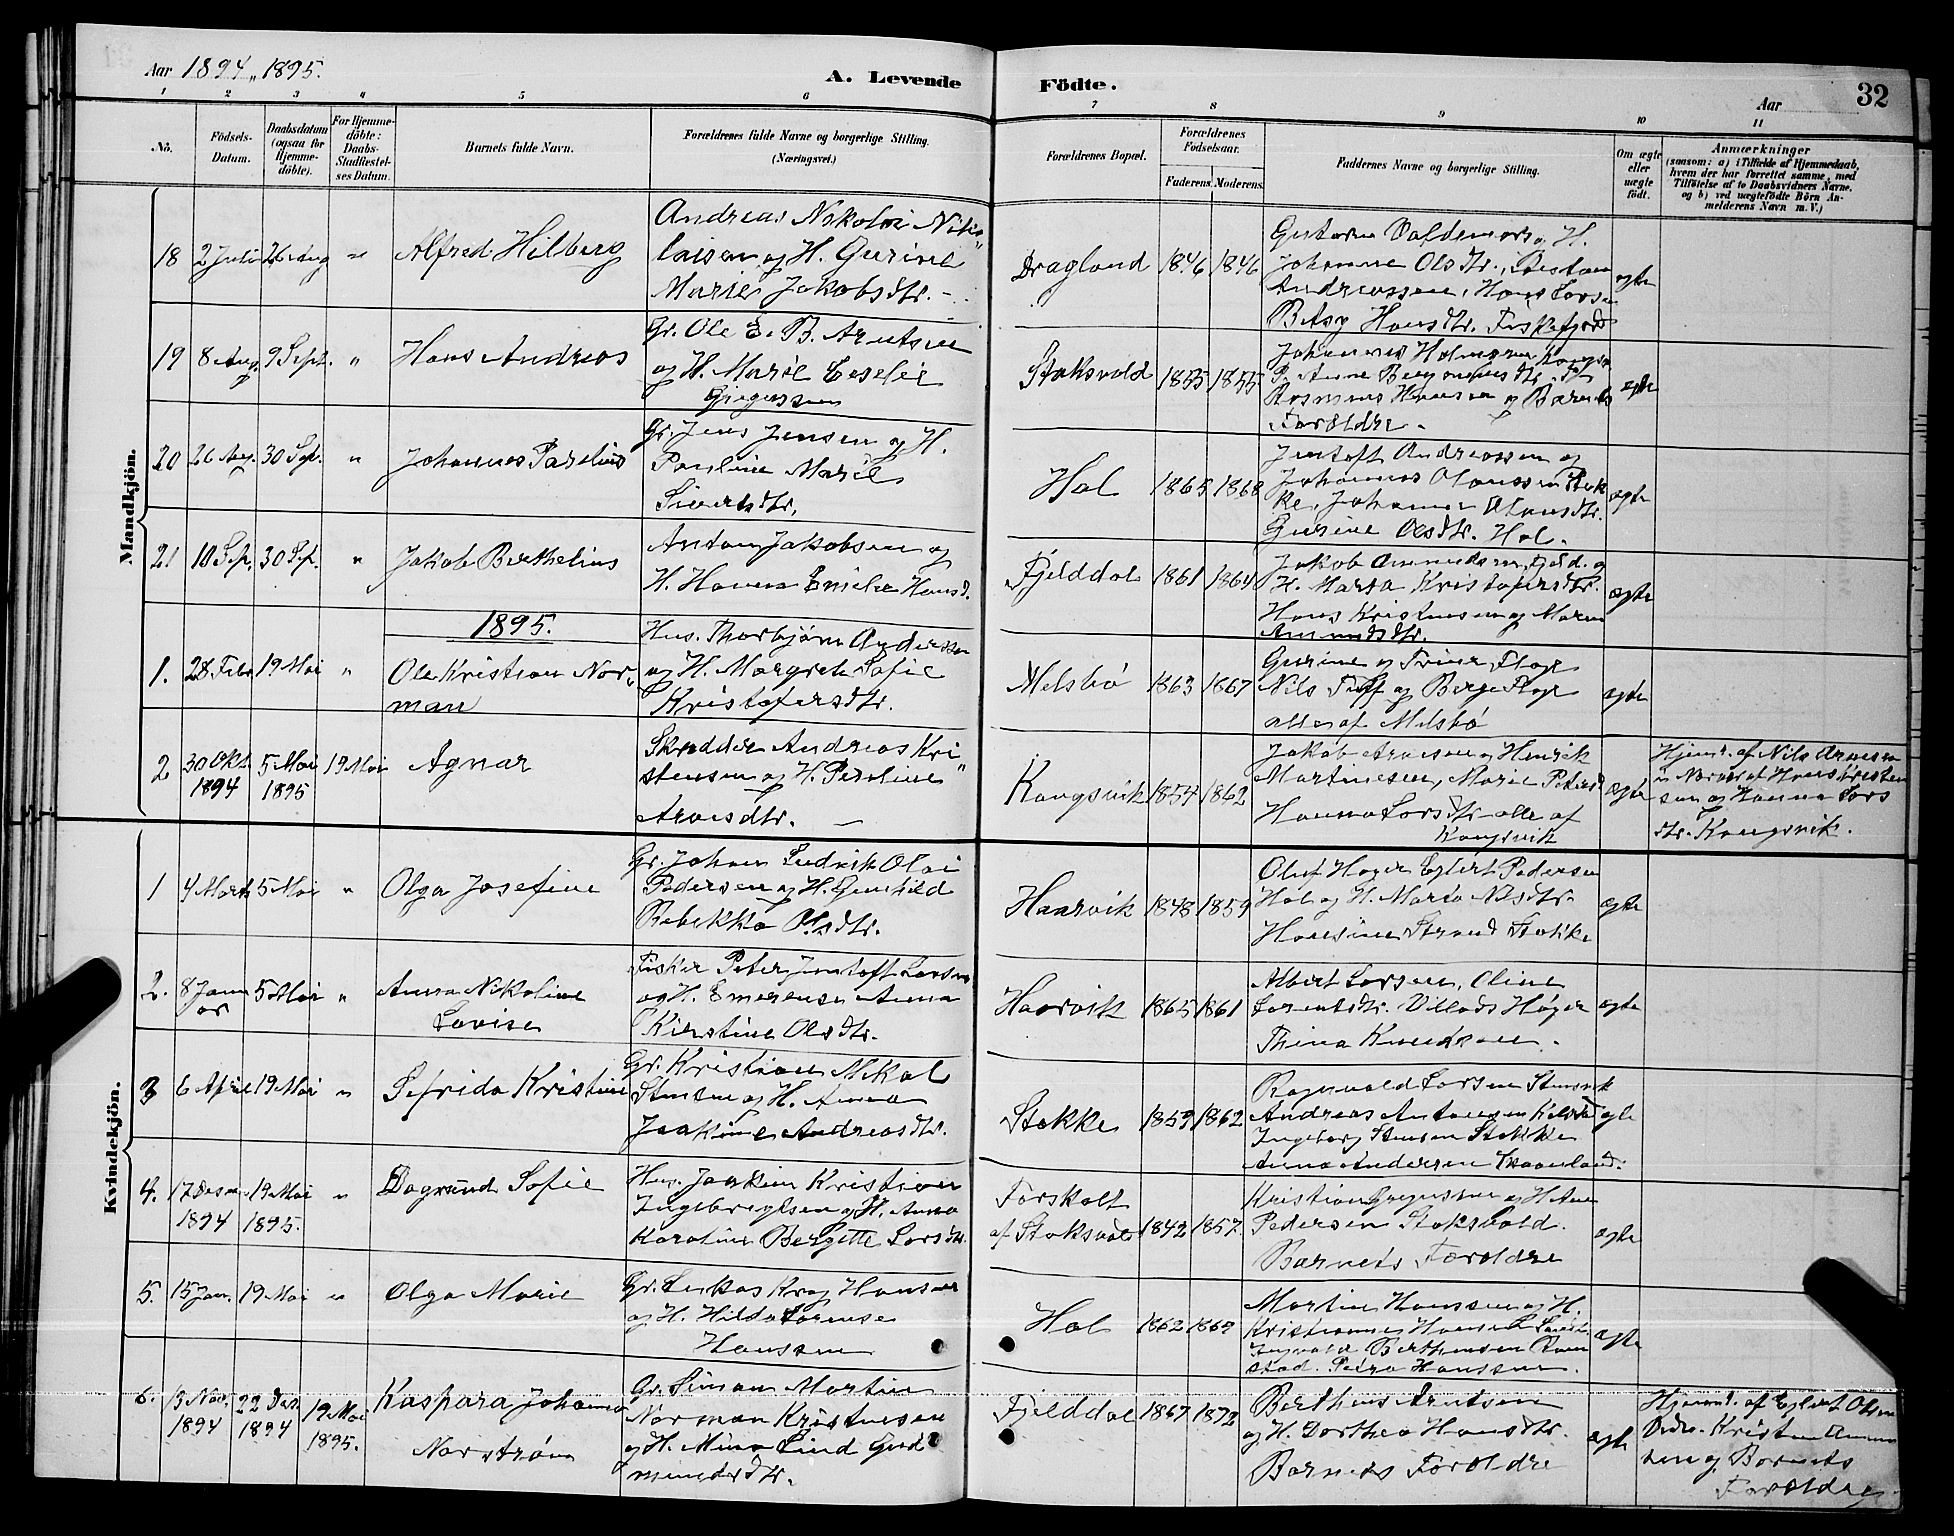 Aar 1894, 1895.
A. Levende
Födte.
Aar
32
1 2 3 4 5 6 7 8 9 10 11
Nô.
Födsels-Datum.
Daabsdatum (ogsaa for Hjemme-döbte).
For Hjemme-döbte: Daabs-Stadfæstel-ses Datum.
Barnets fulde Navn.
Forældrenes fulde Navne og borgerlige Stilling. (Næringsvei.)
Forældrenes Bopæl.
Forældrenes Födselsaar.
Faderens. Moderens.
Faddernes Navne og borgerlige Stilling.
Om ægte eller uægte födt.
Anmærkninger
(saasom: a) i Tilfælde af Hjemmedaab, hvem der har forrettet samme, med Tilföielse af to Daabsvidners Navne, og b) ved uægtefödte Börn An-melderens Navn m. V.)
Mandkjön.
18 2 Juli 26 Aug " Alfred Hilberg
Andreas Nikolai Niko"
laisen og H. Gurine
Marie Jakobsdtr. -
Dragland 1846 1846
Gustav Valdemar og H.
Johanne Olsdtr.,
Andreassen, Hans Larsen
Betsy Hansdtr. Fiskefjord
ægte
19 8 Aug. 9 Sept. " Hans Andreas
Gr. Ole E. B. Arntsen
og H. Marie Ceselie
Gregersen
Stoksvold 1855 1855
Johannes
Rasmus Hansen og Barnets
Forældre.
ægte
20 26 Aug. 30 Sep. " Johannes Parelius
Gr. Jens Jensen og H.
Pauline Marie
Sivertsdtr.
Hol 1865 1868
Jentoft Andreassen og
Johannes Olaussen Stok
ke, Johanna Olausdtr.
Gurine Olsdtr. Hol.
ægte
21 10 Sep. 30 Sep. " Jakob Berthelius
Anton Jakobsen og
H. Hanna Emelie Hansd.
Fjelddal 1861 1864
Jakob Amundsen, Fjeld. og
H. Marta Kristofersdtr.
Hans Kristensen og Maren
Amundsdtr.
ægte
1895.
1. 28 Febr 19 Mai " Ole Kristian Nor"
man
Hus. Thorbjörn Anderssen
og H. Margrete Sofie
Kristofersdtr.
Melsbö 1863 1867
Gurine og Trine Floge
Nils Toff og Berge Floge
alle af Melsbö
ægte
2 30 Okt. 1894 5 Mai 1895 19 Mai Agnar
Skrædder Andreas Kri
stensen og H. Peroline"
Arnesdtr. -
Kongsvik 1854 1862
Jakob Arnesen og Henrik
Martinesen, Marie Petersd
Hanna Larsdtr. alle af
Kongsvik
ægte
Hjemd. af Nils Arnesen
i Nærvær af Hans Kristen
sen og Hanna Lars
dtr. Kongsvik.
Kvindekjön.
1 4 Marts 5 Mai " Olga Josefine
Gr. Johan Ludvik Olai
Pedersen og H. Gunhild
Rebekka Olsdtr.
Haarvik 1848 1859
Oluf Hager Eglert Pedersen
Hol og H. Marta Nilsdtr.
Hansine Strand Stokke
ægte
2. 8 Janu ar 5 Mai " Anna Nikoline
Lovise
Fisker Peter Jentoft Larsen
og H. Emerense Anna
Kirstine Olsdtr.
Haarvik 1865 1861
Albert Larsen, Oline
Larentsdtr. Villads Höger
Thina Knudsen.
ægte
3 6 April 19 Mai " Sefrida Kristine
Gr. Kristian Mikal
Stensen og H. Anna
Joakime Andreasdtr.
Stokke 1859 1862
Ragnvald Larsen Stensvik
Andreas Antonsen
Ingeborg Stensen Stokke
Anna Andersen
ægte
4. 17 Desm. 1894 19 Mai 1895. " Dagrund Sofie
Hus. Joakim Kristian
Ingebregtsen og H. Anna
Karoline Bergitte Larsdtr.
Forskalt
af Stoksvold 1842 1857.
Kristian Gregersen og H. Ane
Pedersen Stoksvold.
Barnets Forældre
ægte
5. 15 Jan. 19 Mai " Olga Marie
Gr. Lukas Krag Hansen
og H. Hilda Lorense
Hanssen
Hol 1862 1869
Martin Hanssen og H.
Kristianne Hansen
Ingvald Berthensen
stad. Petra Hanssen.
ægte
6. 13 Nov. 1894 22 Des. 1894 19 Mai 1895. Kaspara Johanna
Norström
Gr. Simon Martin
Norman Kristensen
og H. Mina Lind Gud
mundsdtr.
Fjelddal 1867 1872
Bertheus Arntsen
og H. Dorthea Hansdtr.
Barnets Forældre
ægte
Hjemd. af Eglert Olsen
Kristen Amund
sen og Barnets
Forældre